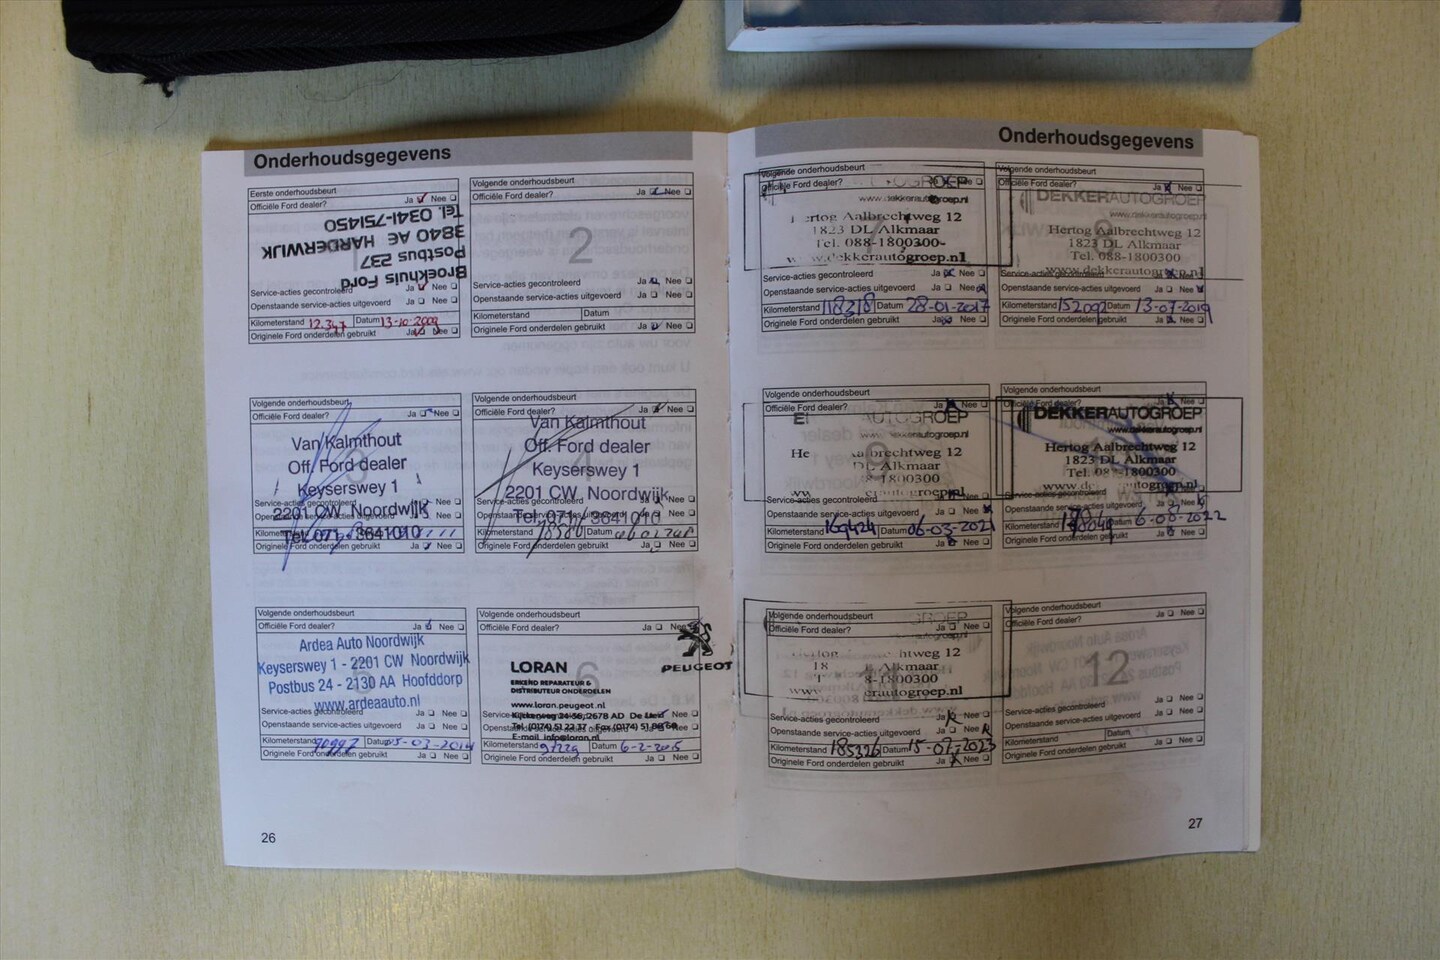 Onderhoudsgegevens
Eerste onderhoudsbeurt
Officiële Ford dealer? Ja Nee
Broekhuis Ford
Postbus 237
3840 AE HARDERWIJK
Tel. 0341-751450
Service-acties gecontroleerd Ja Nee
Openstaande service-acties uitgevoerd Ja Nee
Kilometerstand Datum 13-10-2009
Originele Ford onderdelen gebruikt Ja Nee
Volgende onderhoudsbeurt
Officiële Ford dealer? Ja Nee
2
Service-acties gecontroleerd Ja Nee
Openstaande service-acties uitgevoerd Ja Nee
Kilometerstand Datum
Originele Ford onderdelen gebruikt Ja Nee
Volgende onderhoudsbeurt
Officiële Ford dealer? Ja Nee
3
Van Kalmthout
Off. Ford dealer
Keyserswey 1
2201 CW Noordwijk
Tel. 071 - 3641010
Service-acties gecontroleerd Ja Nee
Originele Ford onderdelen gebruikt Ja Nee
Volgende onderhoudsbeurt
Officiële Ford dealer? Ja Nee
4
Van Kalmthout
Off. Ford dealer
Keyserswey 1
2201 CW Noordwijk
Tel. 071 - 3641010
Service-acties gecontroleerd Ja Nee
Openstaande service-acties uitgevoerd Ja Nee
Kilometerstand Datum
Originele Ford onderdelen gebruikt Ja Nee
Volgende onderhoudsbeurt
Officiële Ford dealer? Ja Nee
5
Ardea Auto Noordwijk
Keyserswey 1 - 2201 CW Noordwijk
Postbus 24 - 2130 AA Hoofddorp
www.ardeaauto.nl
Service-acties gecontroleerd Ja Nee
Openstaande service-acties uitgevoerd Ja Nee
Kilometerstand Datum 05-03-2014
Originele Ford onderdelen gebruikt Ja Nee
Volgende onderhoudsbeurt
Officiële Ford dealer? Ja Nee
6
PEUGEOT
LORAN
ERKEND REPARATEUR &
DISTRIBUTEUR ONDERDELEN
www.loran.peugeot.nl
2678 AD De Lier
Tel. (0174) 51 22 37 - Fax (0174) 51 86 60
E-mail info@loran.nl
Kilometerstand Datum 6-2-2015
Originele Ford onderdelen gebruikt Ja Nee
26
Onderhoudsgegevens
Volgende onderhoudsbeurt
Officiële Ford dealer? Ja Nee
7
Hertog Aalbrechtweg 12
1823 DL Alkmaar
Tel. 088-1800300
www.dekkerautogroep.nl
Service-acties gecontroleerd Ja Nee
Openstaande service-acties uitgevoerd Ja Nee
Kilometerstand 118318 Datum 28-01-2017
Originele Ford onderdelen gebruikt Ja Nee
Volgende onderhoudsbeurt
Officiële Ford dealer? Ja Nee
DEKKERAUTOGROEP
www.dekkerautogroep.nl
Hertog Aalbrechtweg 12
1823 DL Alkmaar
Tel. 088-1800300
www.dekkerautogroep.nl
Openstaande service-acties uitgevoerd Ja Nee
Kilometerstand 152092 Datum 13-07-2019
Originele Ford onderdelen gebruikt Ja Nee
Volgende onderhoudsbeurt
Officiële Ford dealer? Ja Nee
9
AUTOGROEP
www.dekkerautogroep.nl
He albrechtweg 12
DL Alkmaar
8-1800300
Service-acties gecontroleerd Ja Nee
Openstaande service-acties uitgevoerd Ja Nee
Kilometerstand 169424 Datum 06-03-2021
Originele Ford onderdelen gebruikt Ja Nee
Volgende onderhoudsbeurt
Officiële Ford dealer? Ja Nee
DEKKERAUTOGROEP
www.dekkerautogroep.nl
Hertog Aalbrechtweg 12
1823 DL Alkmaar
Tel. 088-1800300
Openstaande service-acties uitgevoerd Ja Nee
Kilometerstand Datum
Originele Ford onderdelen gebruikt Ja Nee
Volgende onderhoudsbeurt
Officiële Ford dealer? Ja Nee
11
htweg 12
18 Alkmaar
T 8-1800300
www erautogroep.nl
Service-acties gecontroleerd Ja Nee
Openstaande service-acties uitgevoerd Ja Nee
Kilometerstand 185326 Datum 15-07-2023
Originele Ford onderdelen gebruikt Ja Nee
Volgende onderhoudsbeurt
Officiële Ford dealer? Ja Nee
12
Service-acties gecontroleerd Ja Nee
Openstaande service-acties uitgevoerd Ja Nee
Kilometerstand Datum
Originele Ford onderdelen gebruikt Ja Nee
27